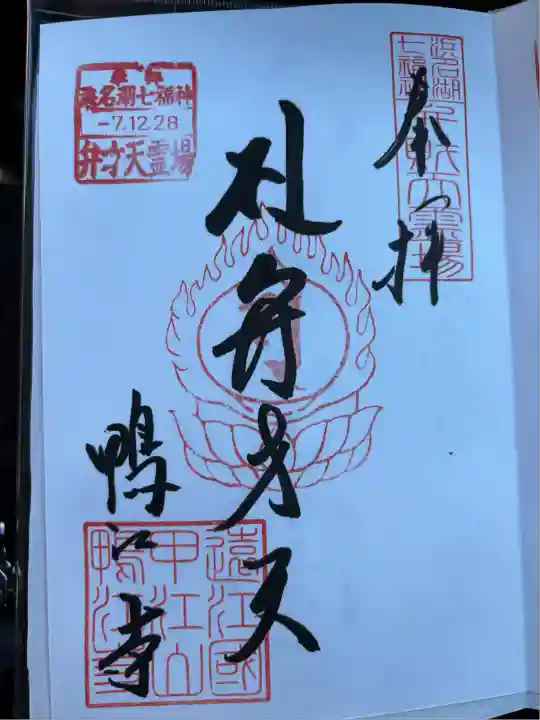 奉拝
浜名湖
七福神
弁財天霊場
札弁才天
奉拝
浜名湖七福神
-7.12.28
弁才天霊場
鴨江寺
遠江國
甲江山
鴨江寺